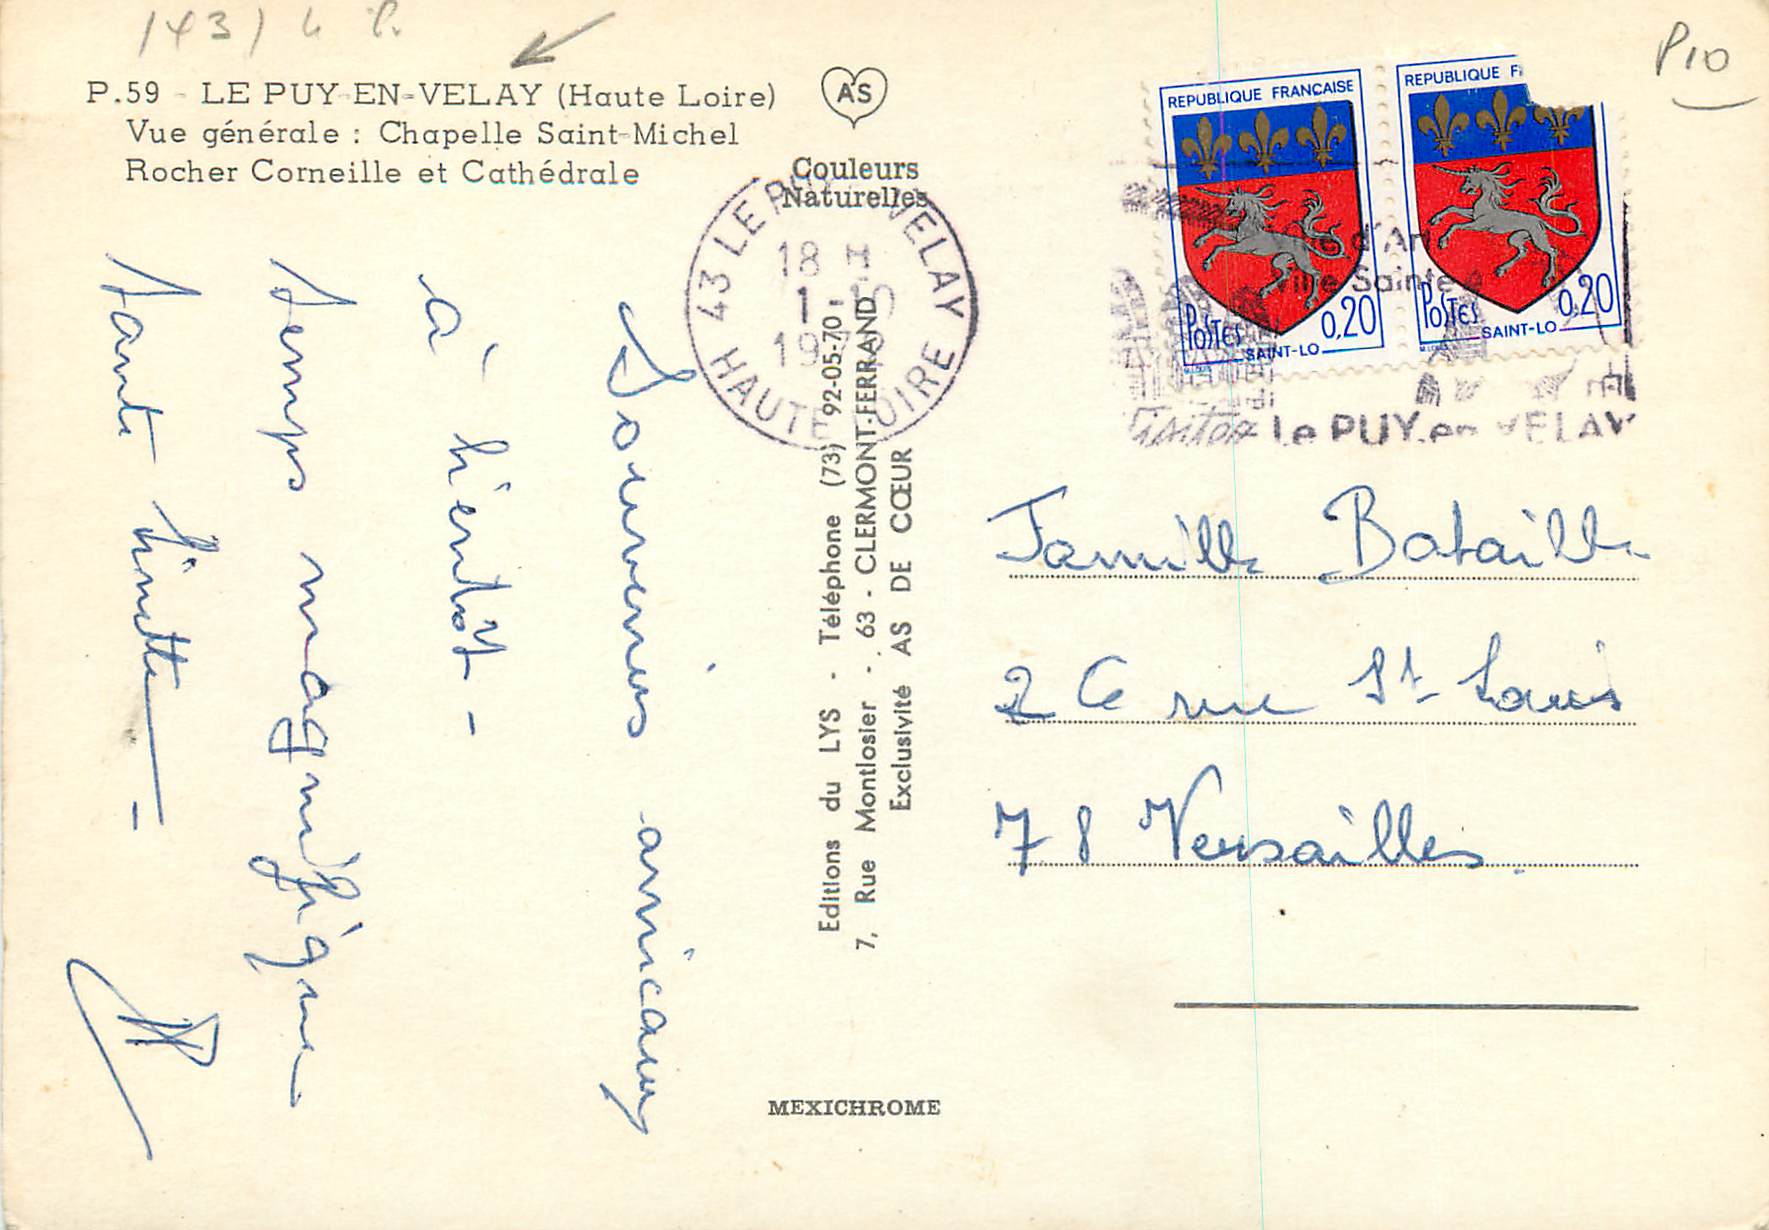 (43) L P.
P10
P.59 - LE PUY-EN-VELAY (Haute Loire)
Vue générale : Chapelle Saint-Michel
Rocher Corneille et Cathédrale
AS
Couleurs
Naturelles
43 LE PUY VELAY
18 H
1-10
HAUTE LOIRE
REPUBLIQUE FRANÇAISE
POSTES
0,20
SAINT-LO
REPUBLIQUE F
POSTES
0,20
SAINT-LO
d'Art
Ville Sainte
Visitez le PUY.en VELAY
Souvenirs amicaux
à bientôt -
Temps magnifique
Tante Linette -
Editions du LYS - Téléphone (73) 92-05-70
7, Rue Montlosier - 63 - CLERMONT-FERRAND
Exclusivité AS DE CŒUR
MEXICHROME
Famille Bataille
26 rue St Louis
78 Versailles.